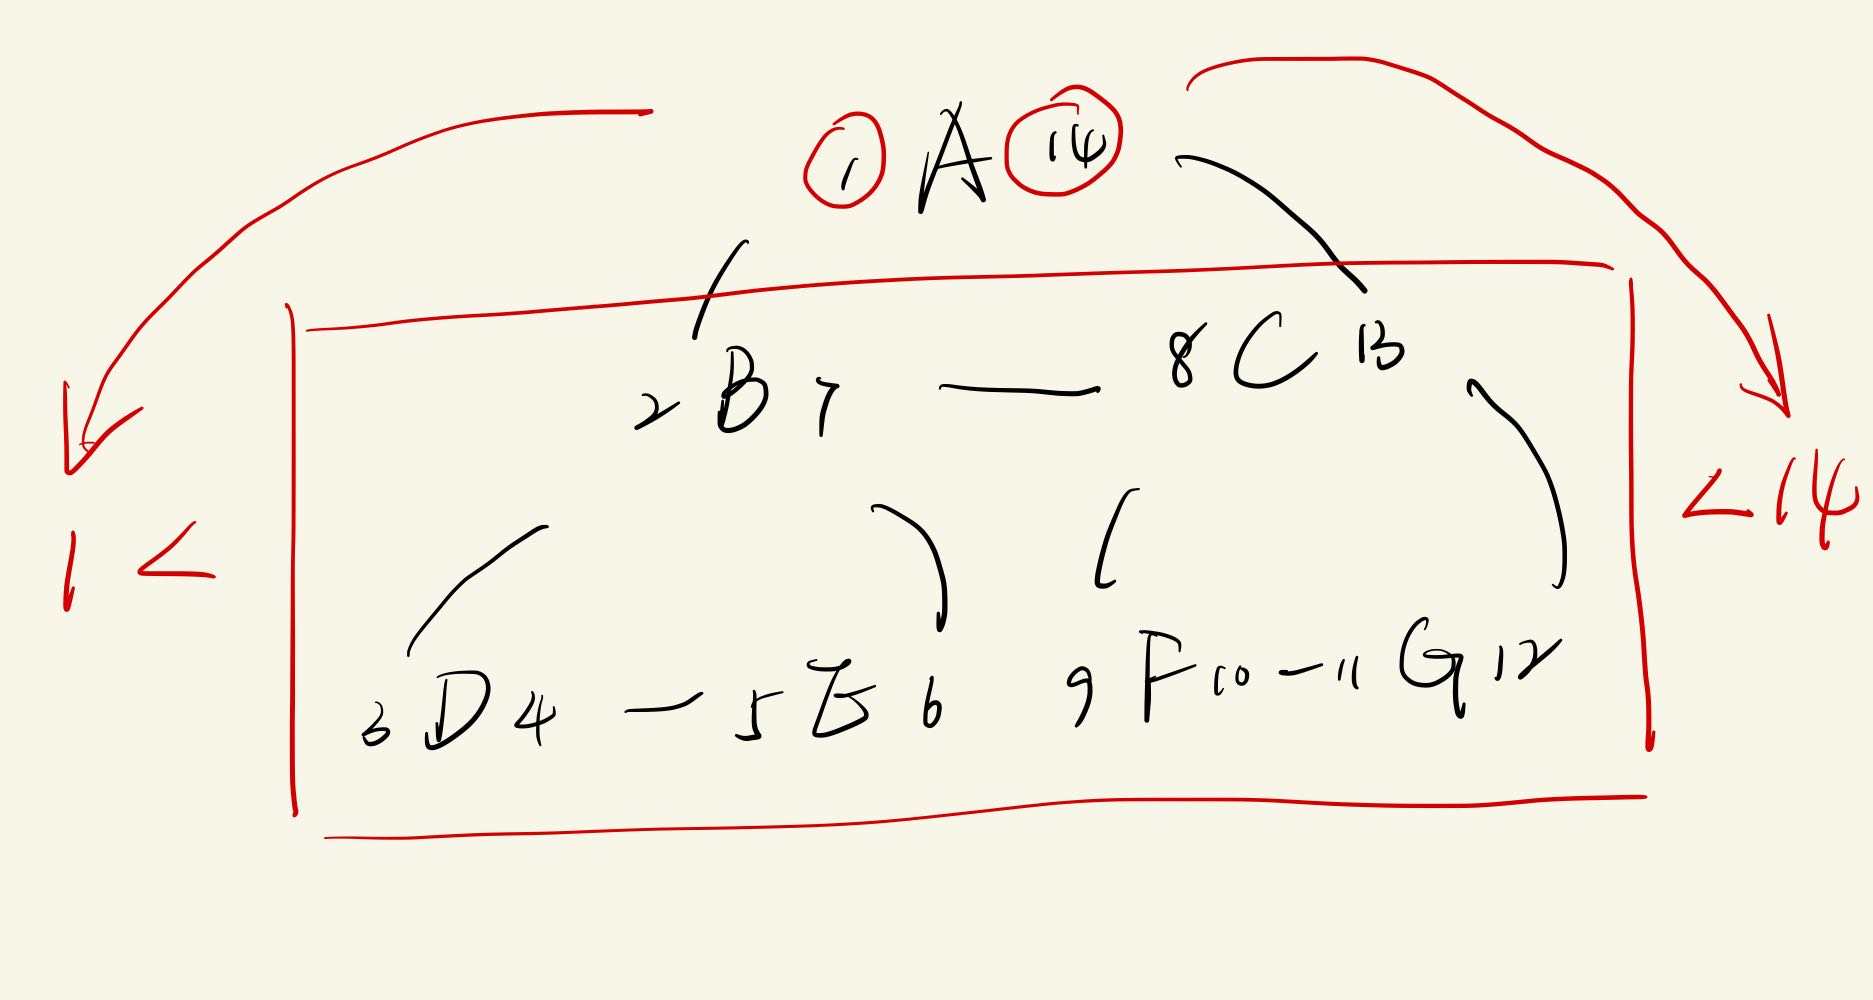 1 A 14
2 B 7 — 8 C 13
1 < < 14
3 D 4 — 5 E 6 9 F 10 — 11 G 12